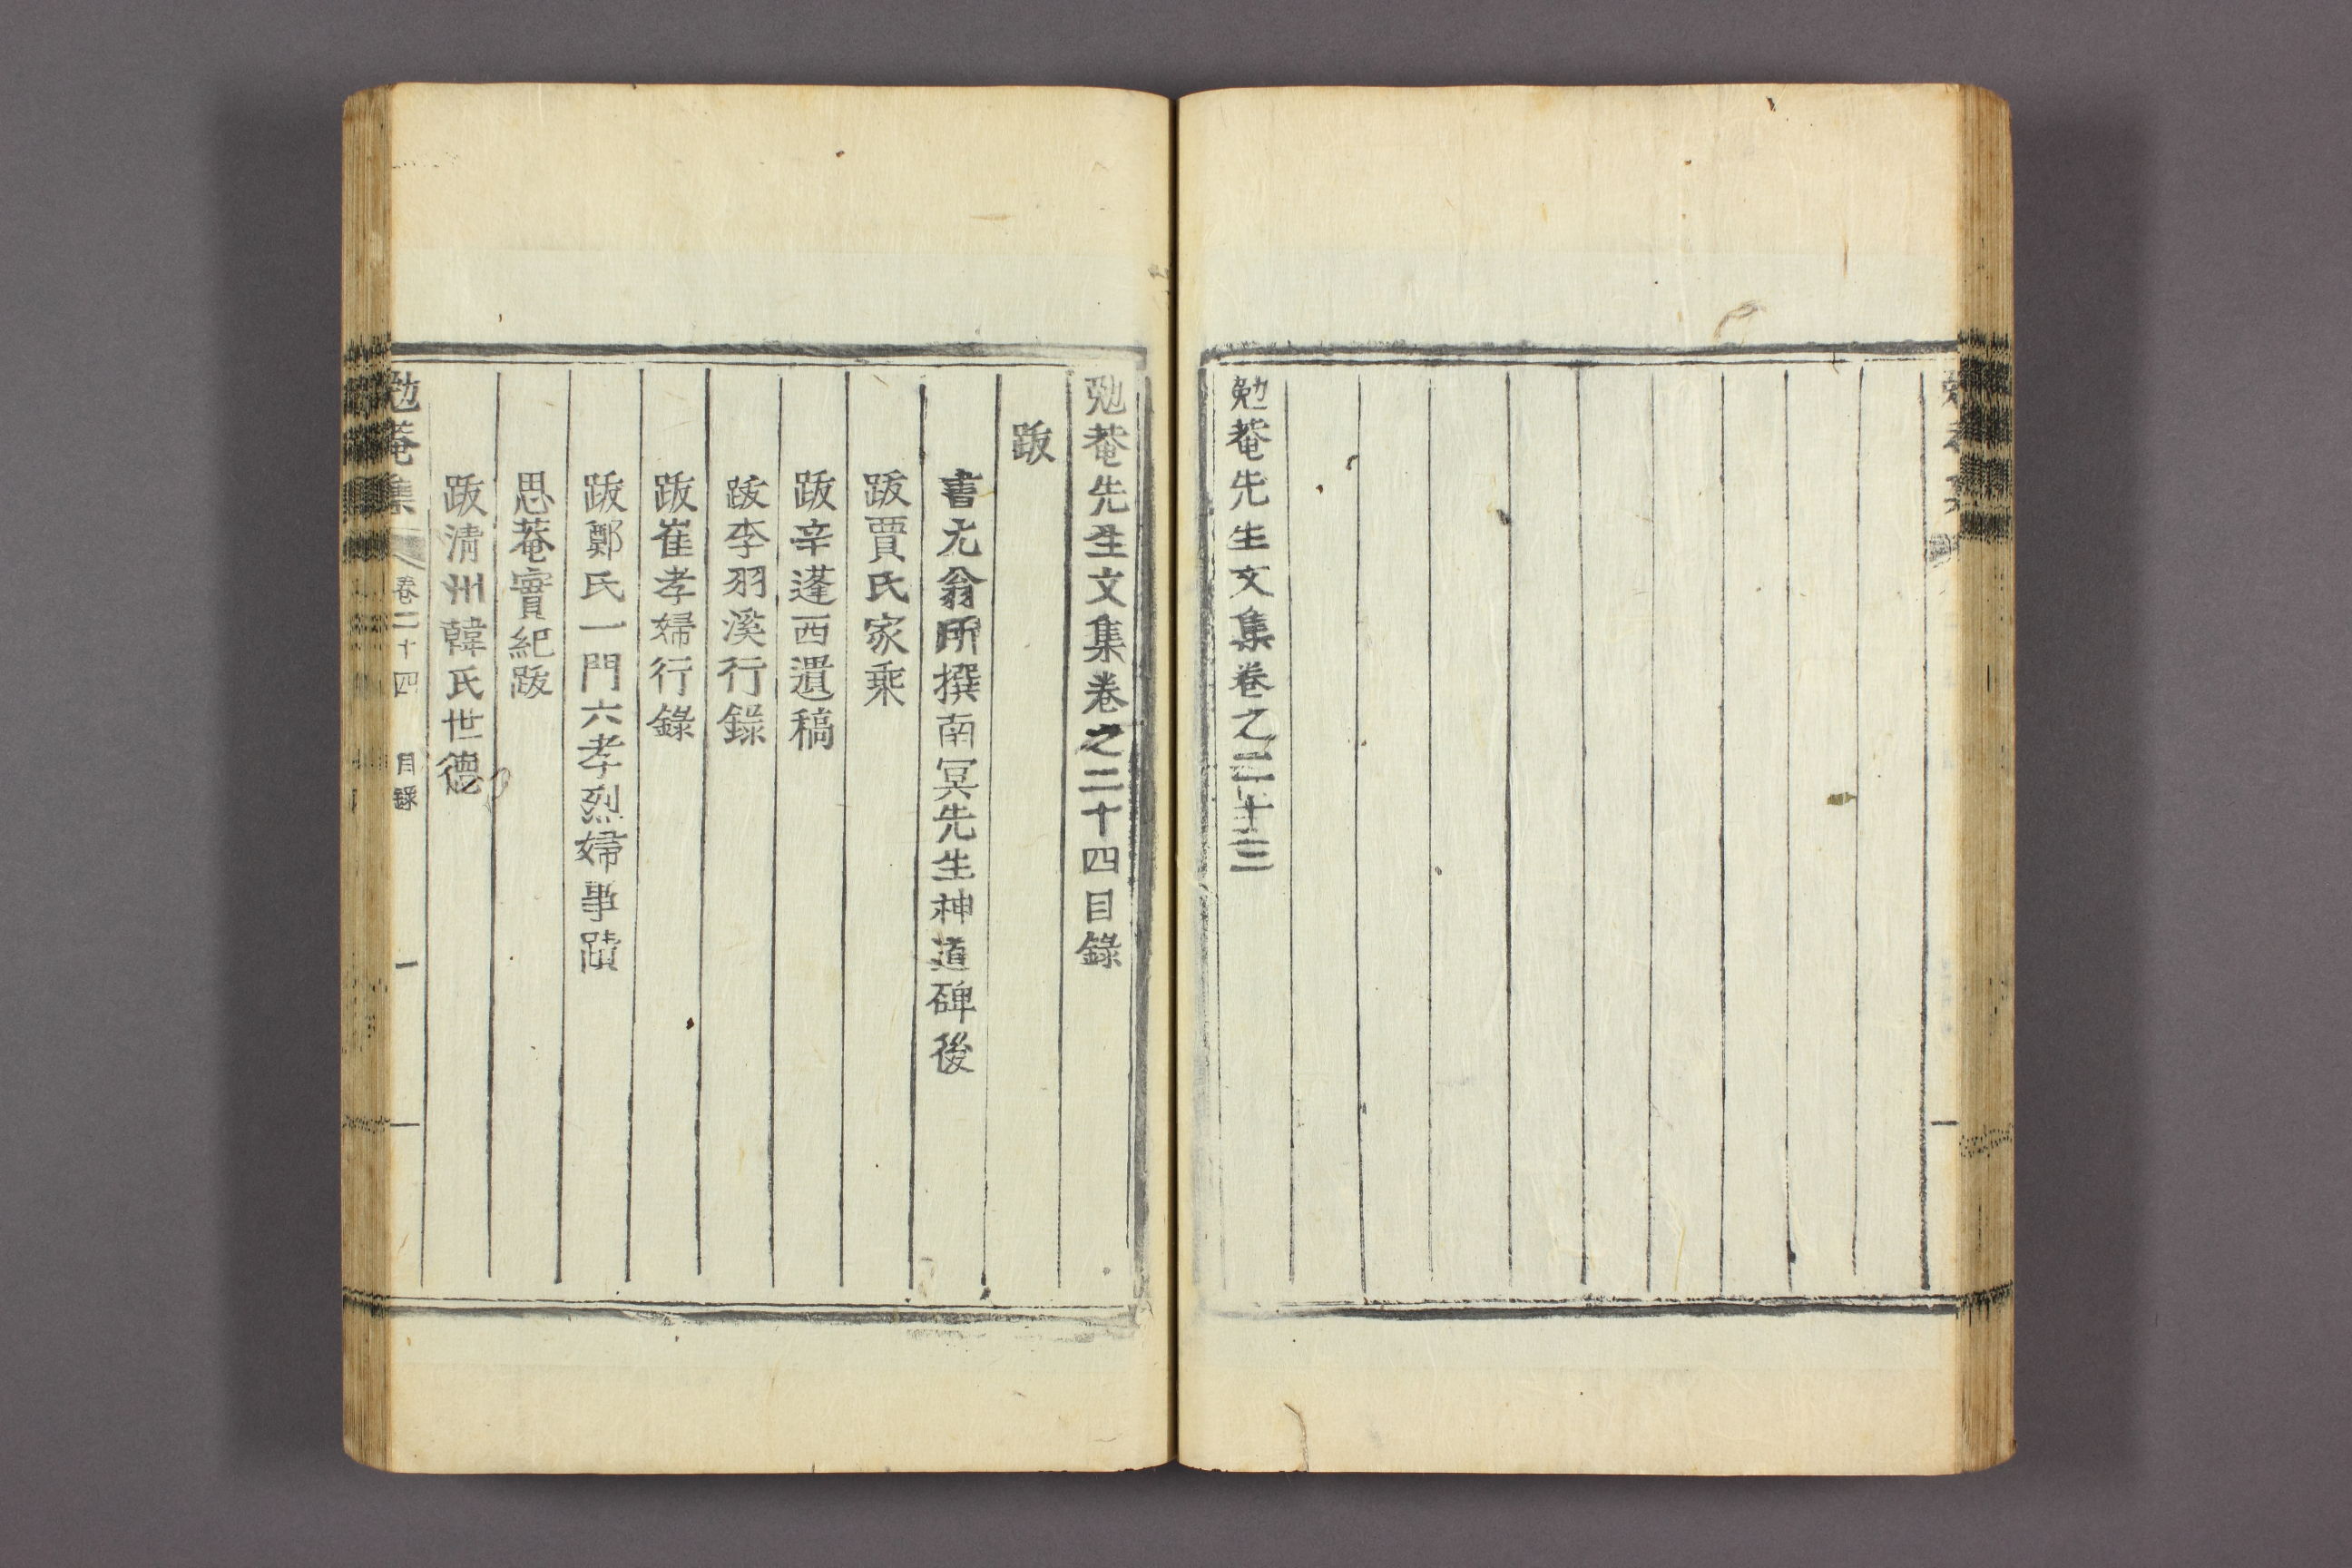 勉菴先生文集卷之二十三
勉菴先生文集卷之二十四目錄
跋
書尤翁所撰南冥先生神道碑後
跋賈氏家乘
跋辛蓬西遺稿
跋李羽溪行錄
跋崔孝婦行錄
跋鄭氏一門六孝烈婦事蹟
思菴實紀跋
跋淸州韓氏世德
勉菴集 卷二十四 目錄 一